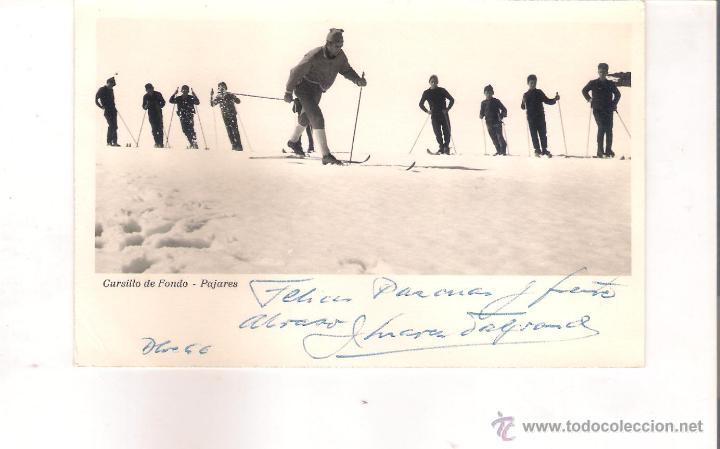 Cursillo de Fondo - Pajares
Felices Pascuas y
Alvaro
Dbre 66
www.todocoleccion.net